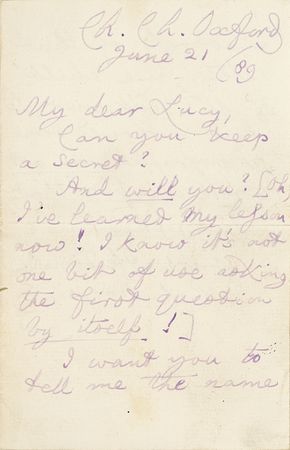 Ch. Ch. Oxford
June 21/89
My dear Lucy,
Can you keep
a secret?
And will you? [oh,
I've learned my lesson
now! I know it's not
one bit of use asking
the first question
by itself!]
I want you to
tell me the name